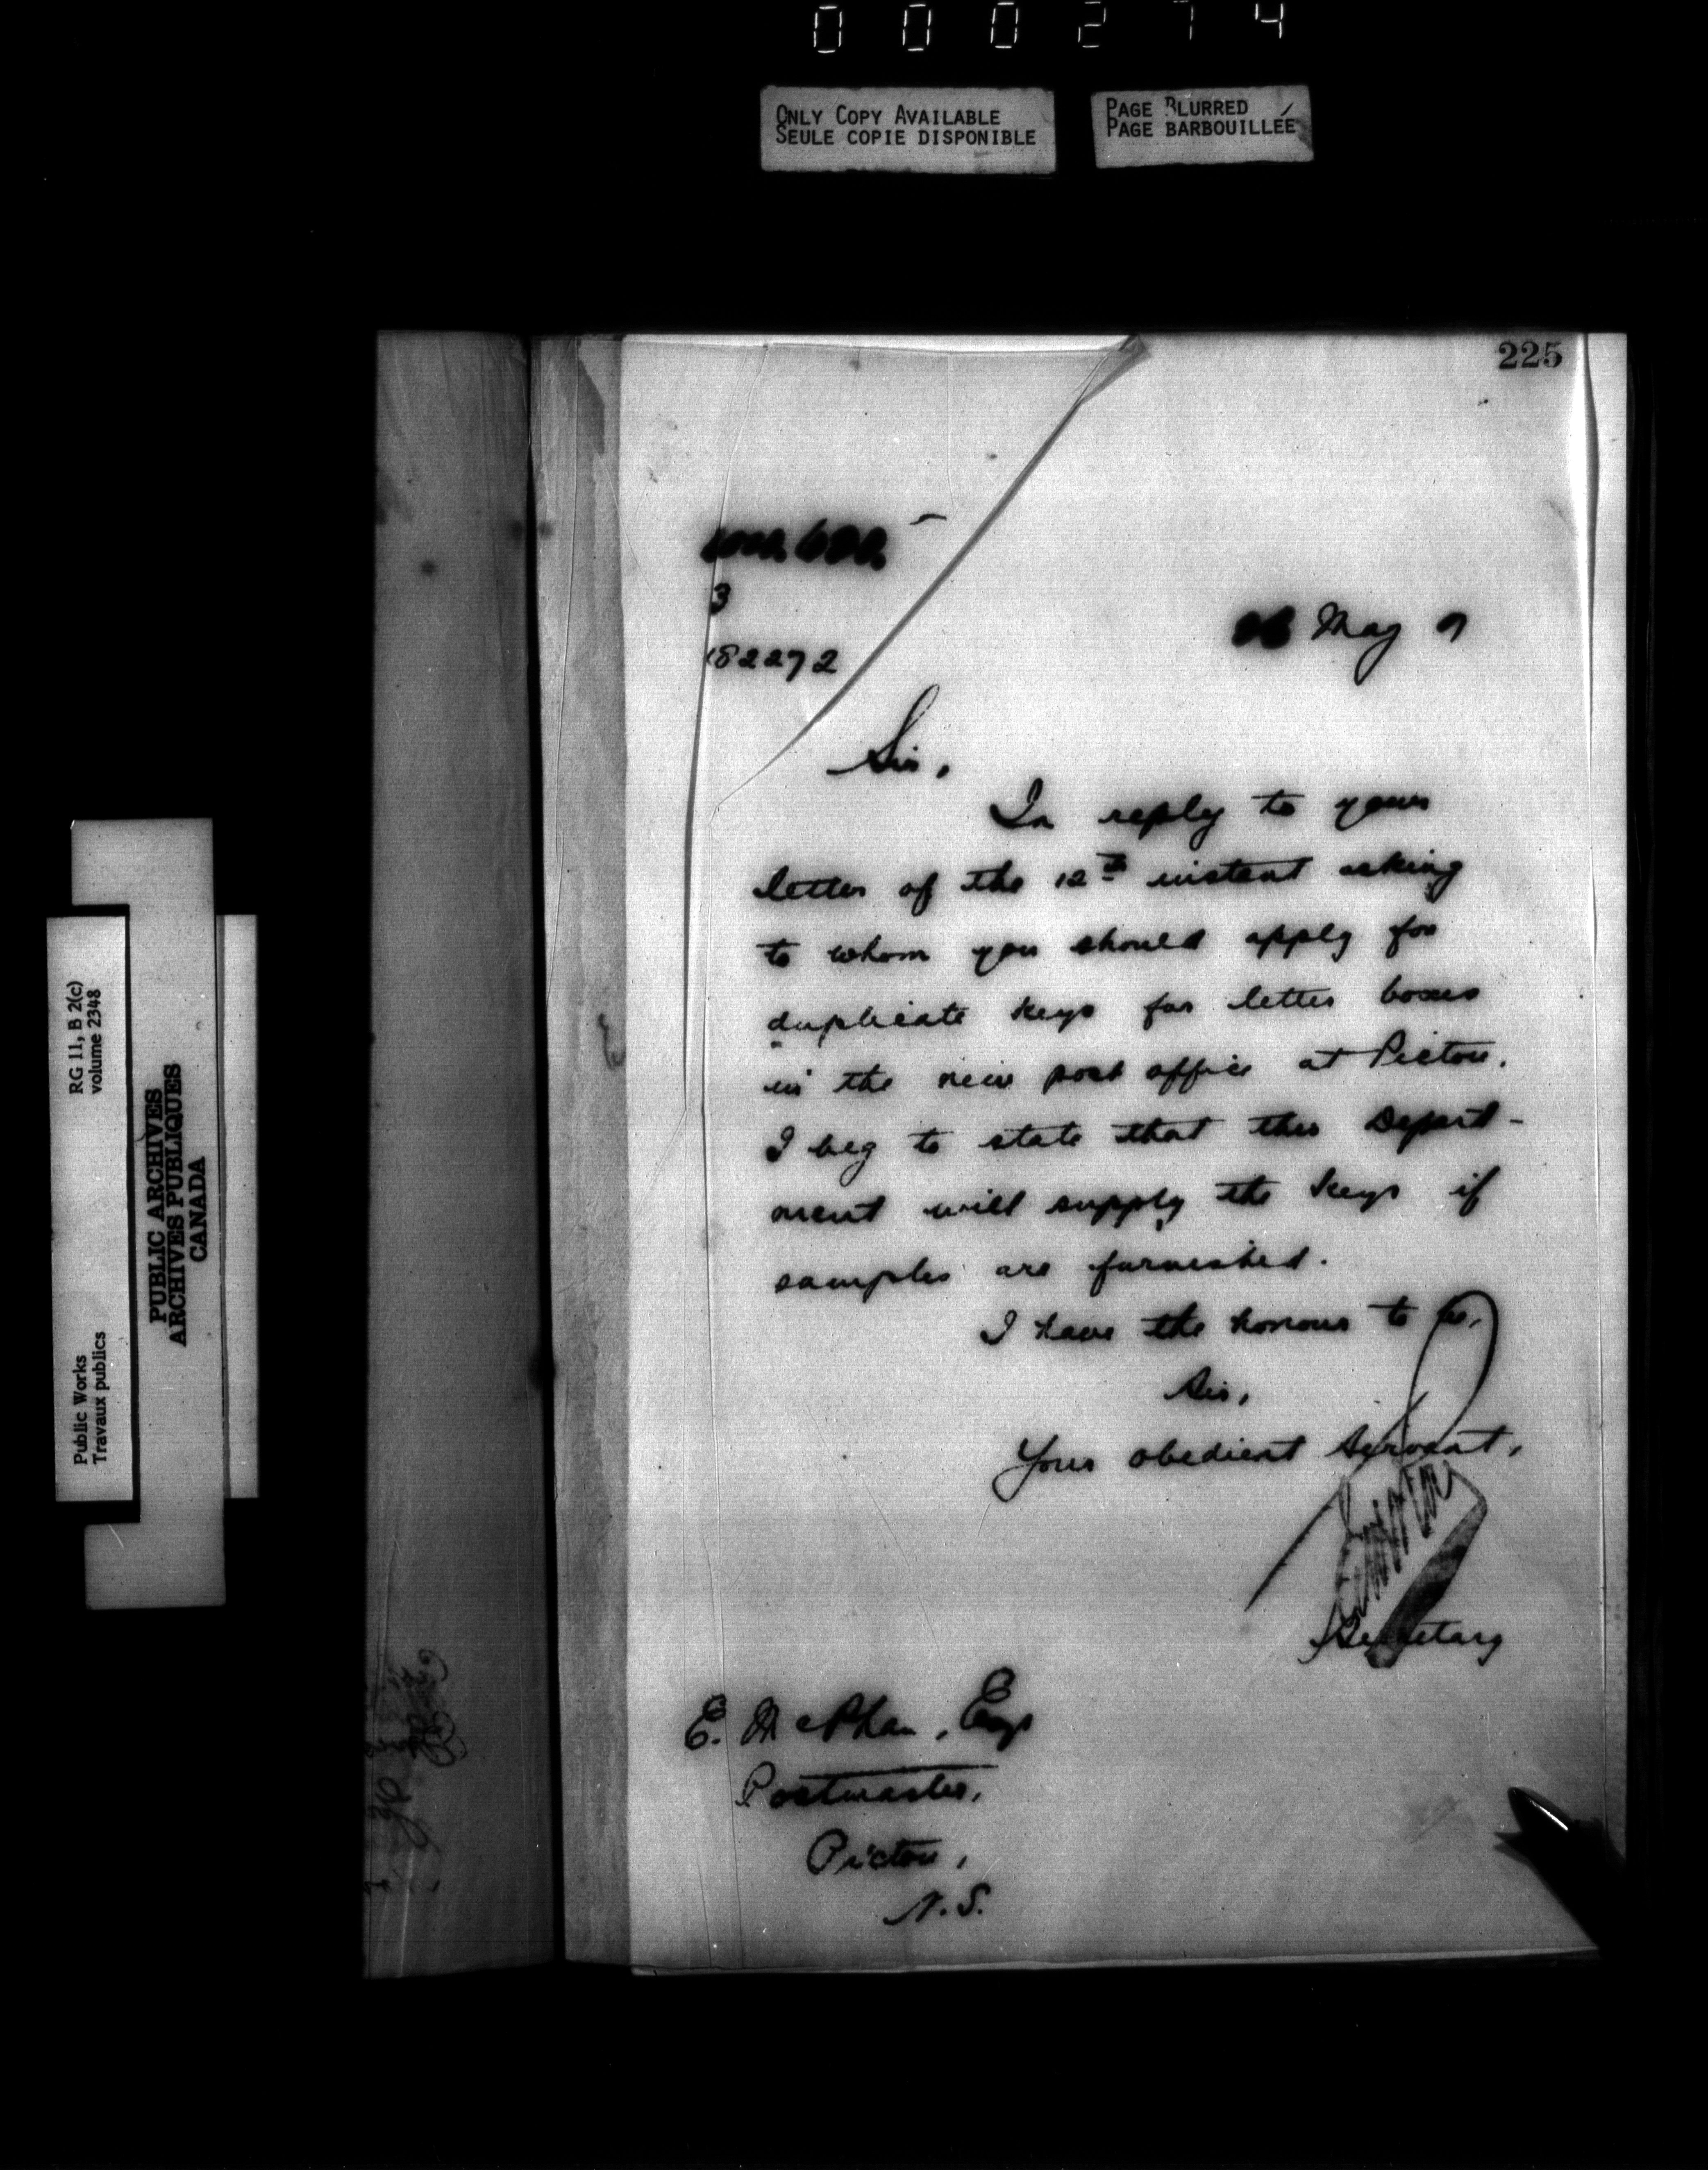 000274
ONLY COPY AVAILABLE
SEULE COPIE DISPONIBLE
PAGE BLURRED
PAGE BARBOUILLÉE
225
3
182272
May 7
Sir,
In reply to your
letter of the 12th instant asking
to whom you should apply for
duplicate keys for letter boxes
in the new post office at Pictou.
I beg to state that this Depart-
ment will supply the keys if
samples are furnished.
I have the honour to be,
Sir,
Your obedient Servant,
Secretary
E. McPhan, Esqr
Postmaster,
Pictou,
N.S.
RG 11, B 2(c)
volume 2348
Public Works
Travaux publics
PUBLIC ARCHIVES
ARCHIVES PUBLIQUES
CANADA